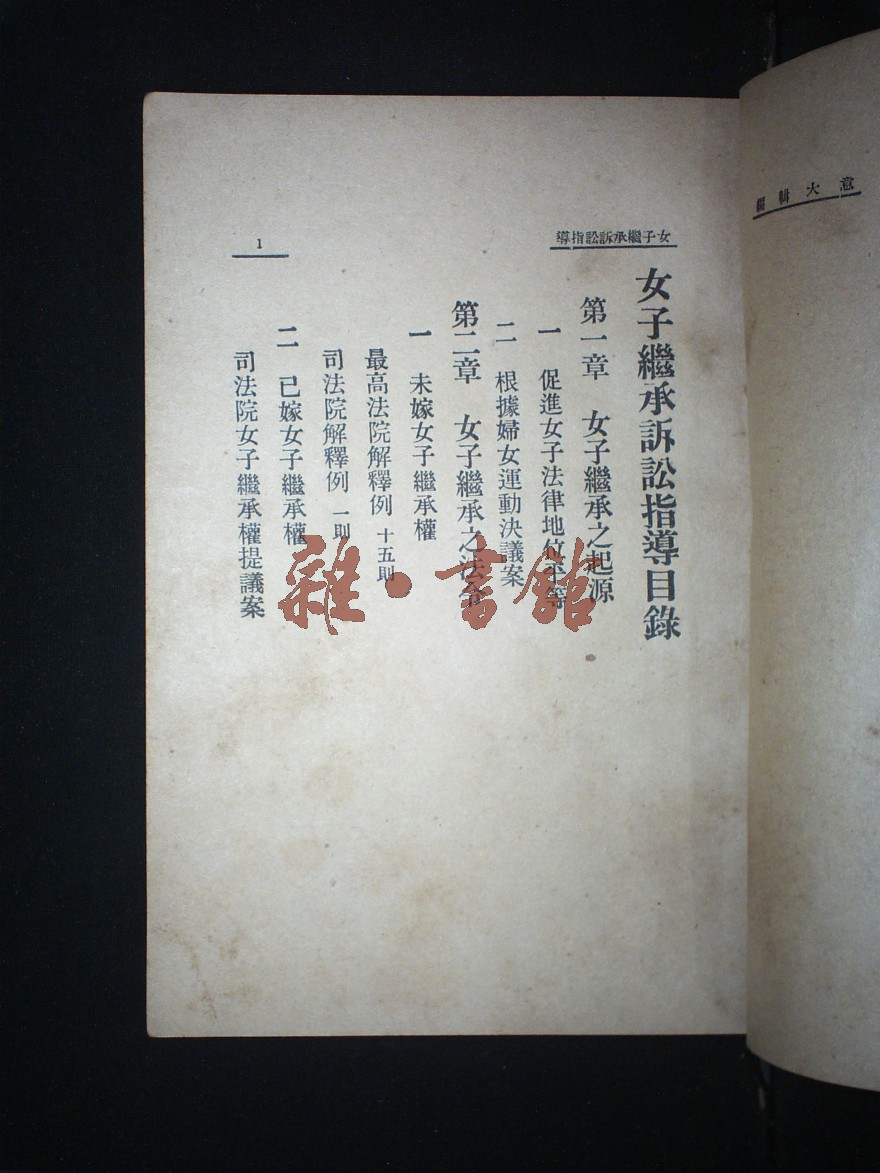 意大輯編
女子繼承訴訟指導
1
女子繼承訴訟指導目錄
第一章 女子繼承之起源
一 促進女子法律地位平等
二 根據婦女運動決議案
第二章 女子繼承之法令
一 未嫁女子繼承權
最高法院解釋例 十五則
司法院解釋例 一則
二 已嫁女子繼承權
司法院女子繼承權提議案
雜·書館